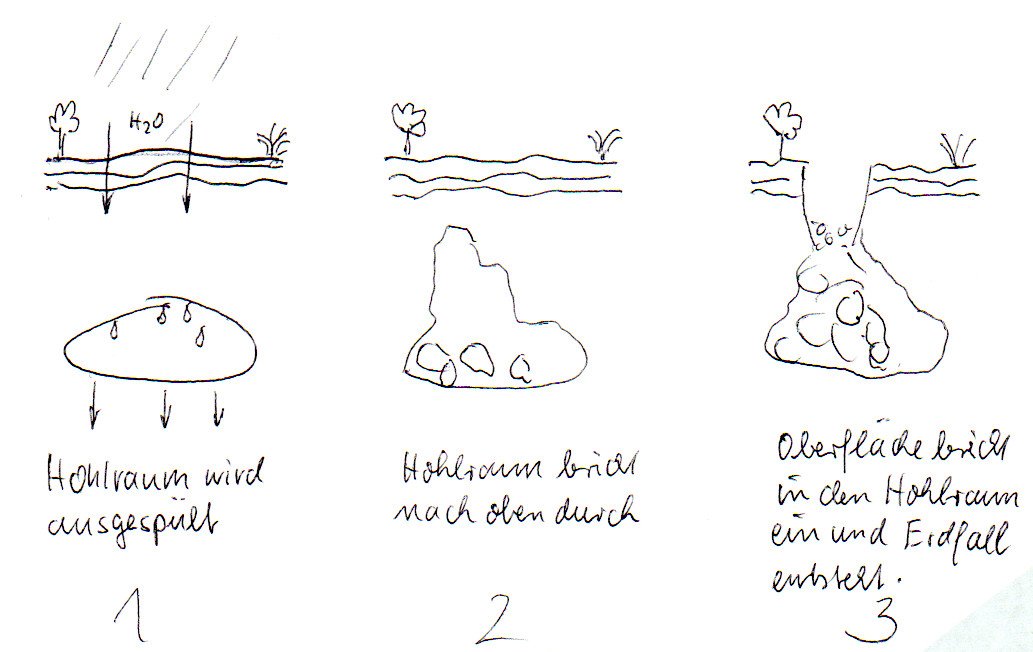 H2O
Hohlraum wird
ausgespült
1
Hohlraum bricht
nach oben durch
2
Oberfläche bricht
in den Hohlraum
ein und Erdfall
entsteht.
3